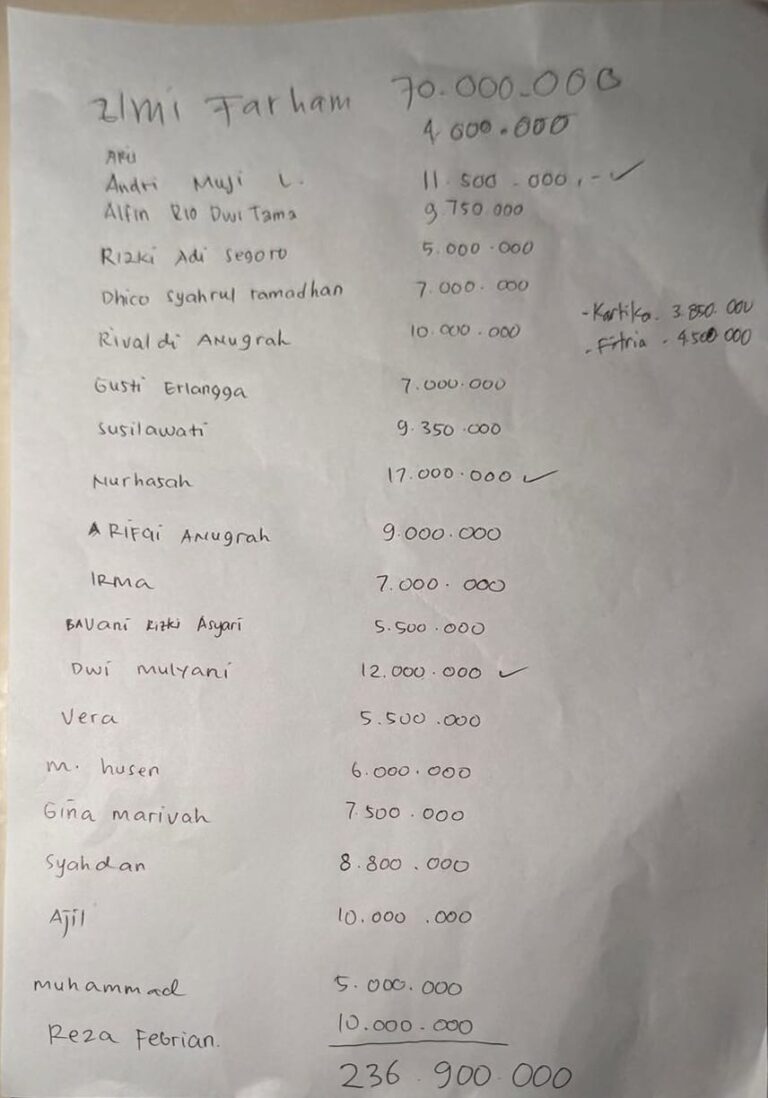 Zlmi Farham 70.000.000
4.000.000
Aku
Andri Muji L. 11.500.000,- ✓
Alfin Rio Dwi Tama 9.750.000
Rizki Adi Segoro 5.000.000
Dhico Syahrul ramadhan 7.000.000
- Kartika. 3.850.000
Rivaldi Anugrah 10.000.000
- Fitria - 4.500.000
Gusti Erlangga 7.000.000
Susilawati 9.350.000
Nurhasah 17.000.000 ✓
A Rifqi Anugrah 9.000.000
Irma 7.000.000
Bavani Rizki Asyari 5.500.000
Dwi mulyani 12.000.000 ✓
Vera 5.500.000
m. husen 6.000.000
Gina marivah 7.500.000
Syahdan 8.800.000
Ajil 10.000.000
muhammad 5.000.000
Reza Febrian. 10.000.000
236.900.000